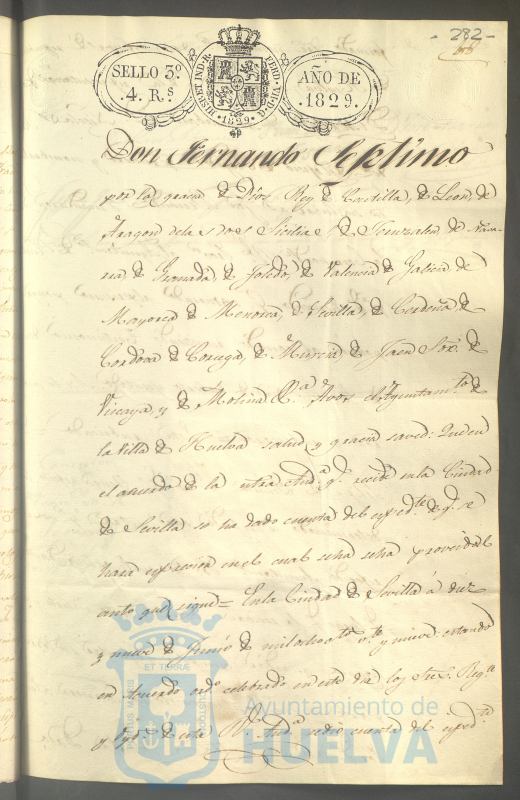 - 282 -
SELLO 3º
4. Rs
HISP. ET IND. R. FERD. VII. D. G.
1829
AÑO DE
1829.
Don Fernando Septimo
por la gracia de Dios Rey de Castilla, de Leon, de
Aragon de las dos Sicilias de Jerusalen, de Nava-
rra de Granada, de Toledo, de Valencia de Galicia de
Mayorca de Menorca, de Sevilla, de Cerdeña, de
Cordova de Corcega, de Murcia de Jaen Sor. de
Viscaya, y de Molina &ª. A vos el Ayuntamto. de
la Villa de Huelva salud y gracia saved: Que en
el acuerdo de la nuestra Audª. qe. recide en la Ciudad
de Sevilla se ha dado cuenta del expedte. de qe. se
hará exprecion en el cual se ha proveido el
auto que sigue = En la Ciudad de Sevilla á diez
y nueve de Junio de mil ochotos. vte. y nueve: estando
en Acuerdo ordº. celebrado en este dia los Sres. Regte.
y Oyds. de esta Rl. Audª. se dio cuenta del expedte.
PORTUS MARIS ET TERRAE CUSTODIA
Ayuntamiento de
HUELVA